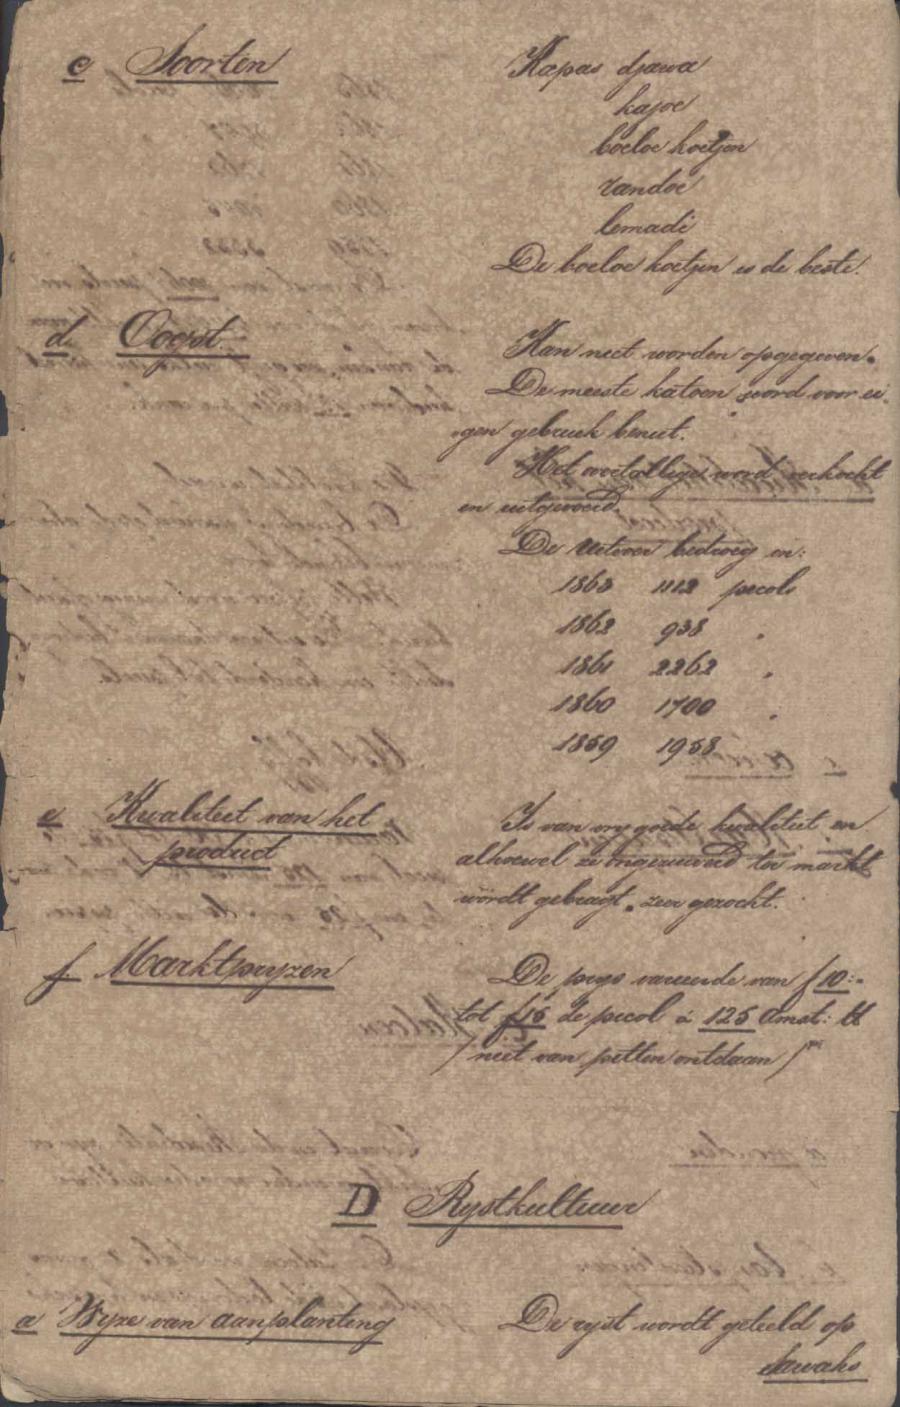 c Soorten
Kapas djawa
kajoe
boeloe koetjen
randoe
lemadi
De boeloe koetjen is de beste.
d. Oogst
Kan niet worden opgegeven.
De meeste katoen word voor ei
gen gebruik benut.
Het overtollige word verkocht
en uitgevoerd.
De uitvoer bedroeg in:
1863 1112 pecols
1862 938 "
1861 2262 "
1860 1700 "
1859 1958
e Kwaliteit van het
product
Is van vry goede kwaliteit en
alhoewel ze ongezuiverd ter markt
wordt gebragt, zeer gezocht.
f. Marktpryzen
De prys varieerde van f 10:-
tot f 15 de pecol à 125 Amst: lb
/ niet van pitten ontdaan /
D Rystkultuur
a Wyze van aanplanting
De ryst wordt geteeld op
sawahs